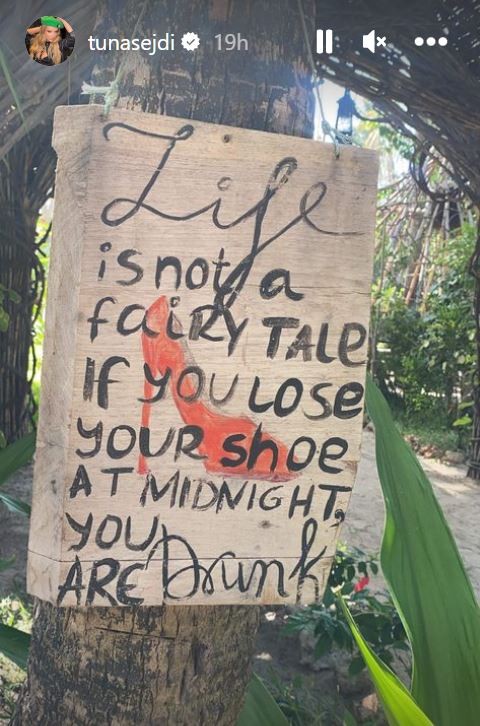 tunasejdi 19h
Life
is not a
fairy TALE
If you LOSE
YOUR shoe
AT MIDNIGHT,
YOU
ARE Drunk